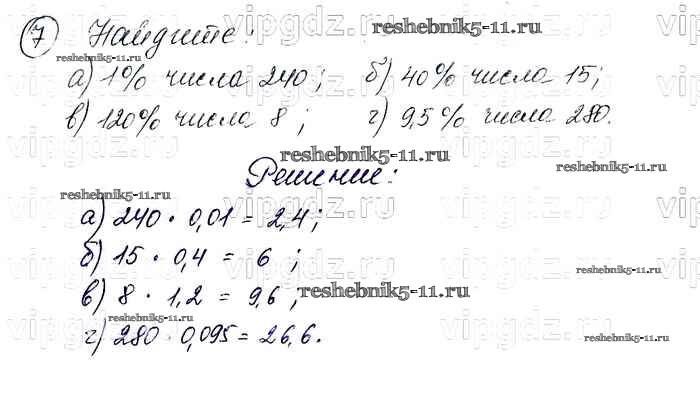 7 Найдите:
а) 1% числа 240; б) 40% числа 15;
в) 120% числа 8; г) 9,5% числа 280.
Решение:
а) 240 · 0,01 = 2,4;
б) 15 · 0,4 = 6;
в) 8 · 1,2 = 9,6;
г) 280 · 0,095 = 26,6.
reshebnik5-11.ru
reshebnik5-11.ru
reshebnik5-11.ru
reshebnik5-11.ru
reshebnik5-11.ru
reshebnik5-11.ru
reshebnik5-11.ru
reshebnik5-11.ru
reshebnik5-11.ru
vipgdz.ru